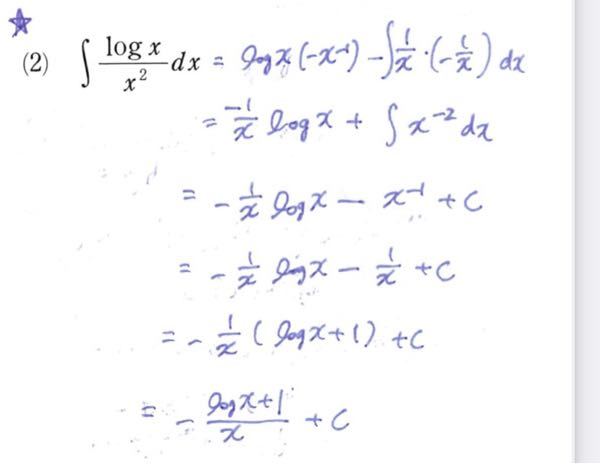 ★
(2) ∫ log x / x² dx = log x (-x⁻¹) - ∫ 1/x · (-1/x) dx
= -1/x log x + ∫ x⁻² dx
= - 1/x log x - x⁻¹ + C
= - 1/x log x - 1/x + C
= - 1/x ( log x + 1 ) + C
= - log x + 1 / x + C